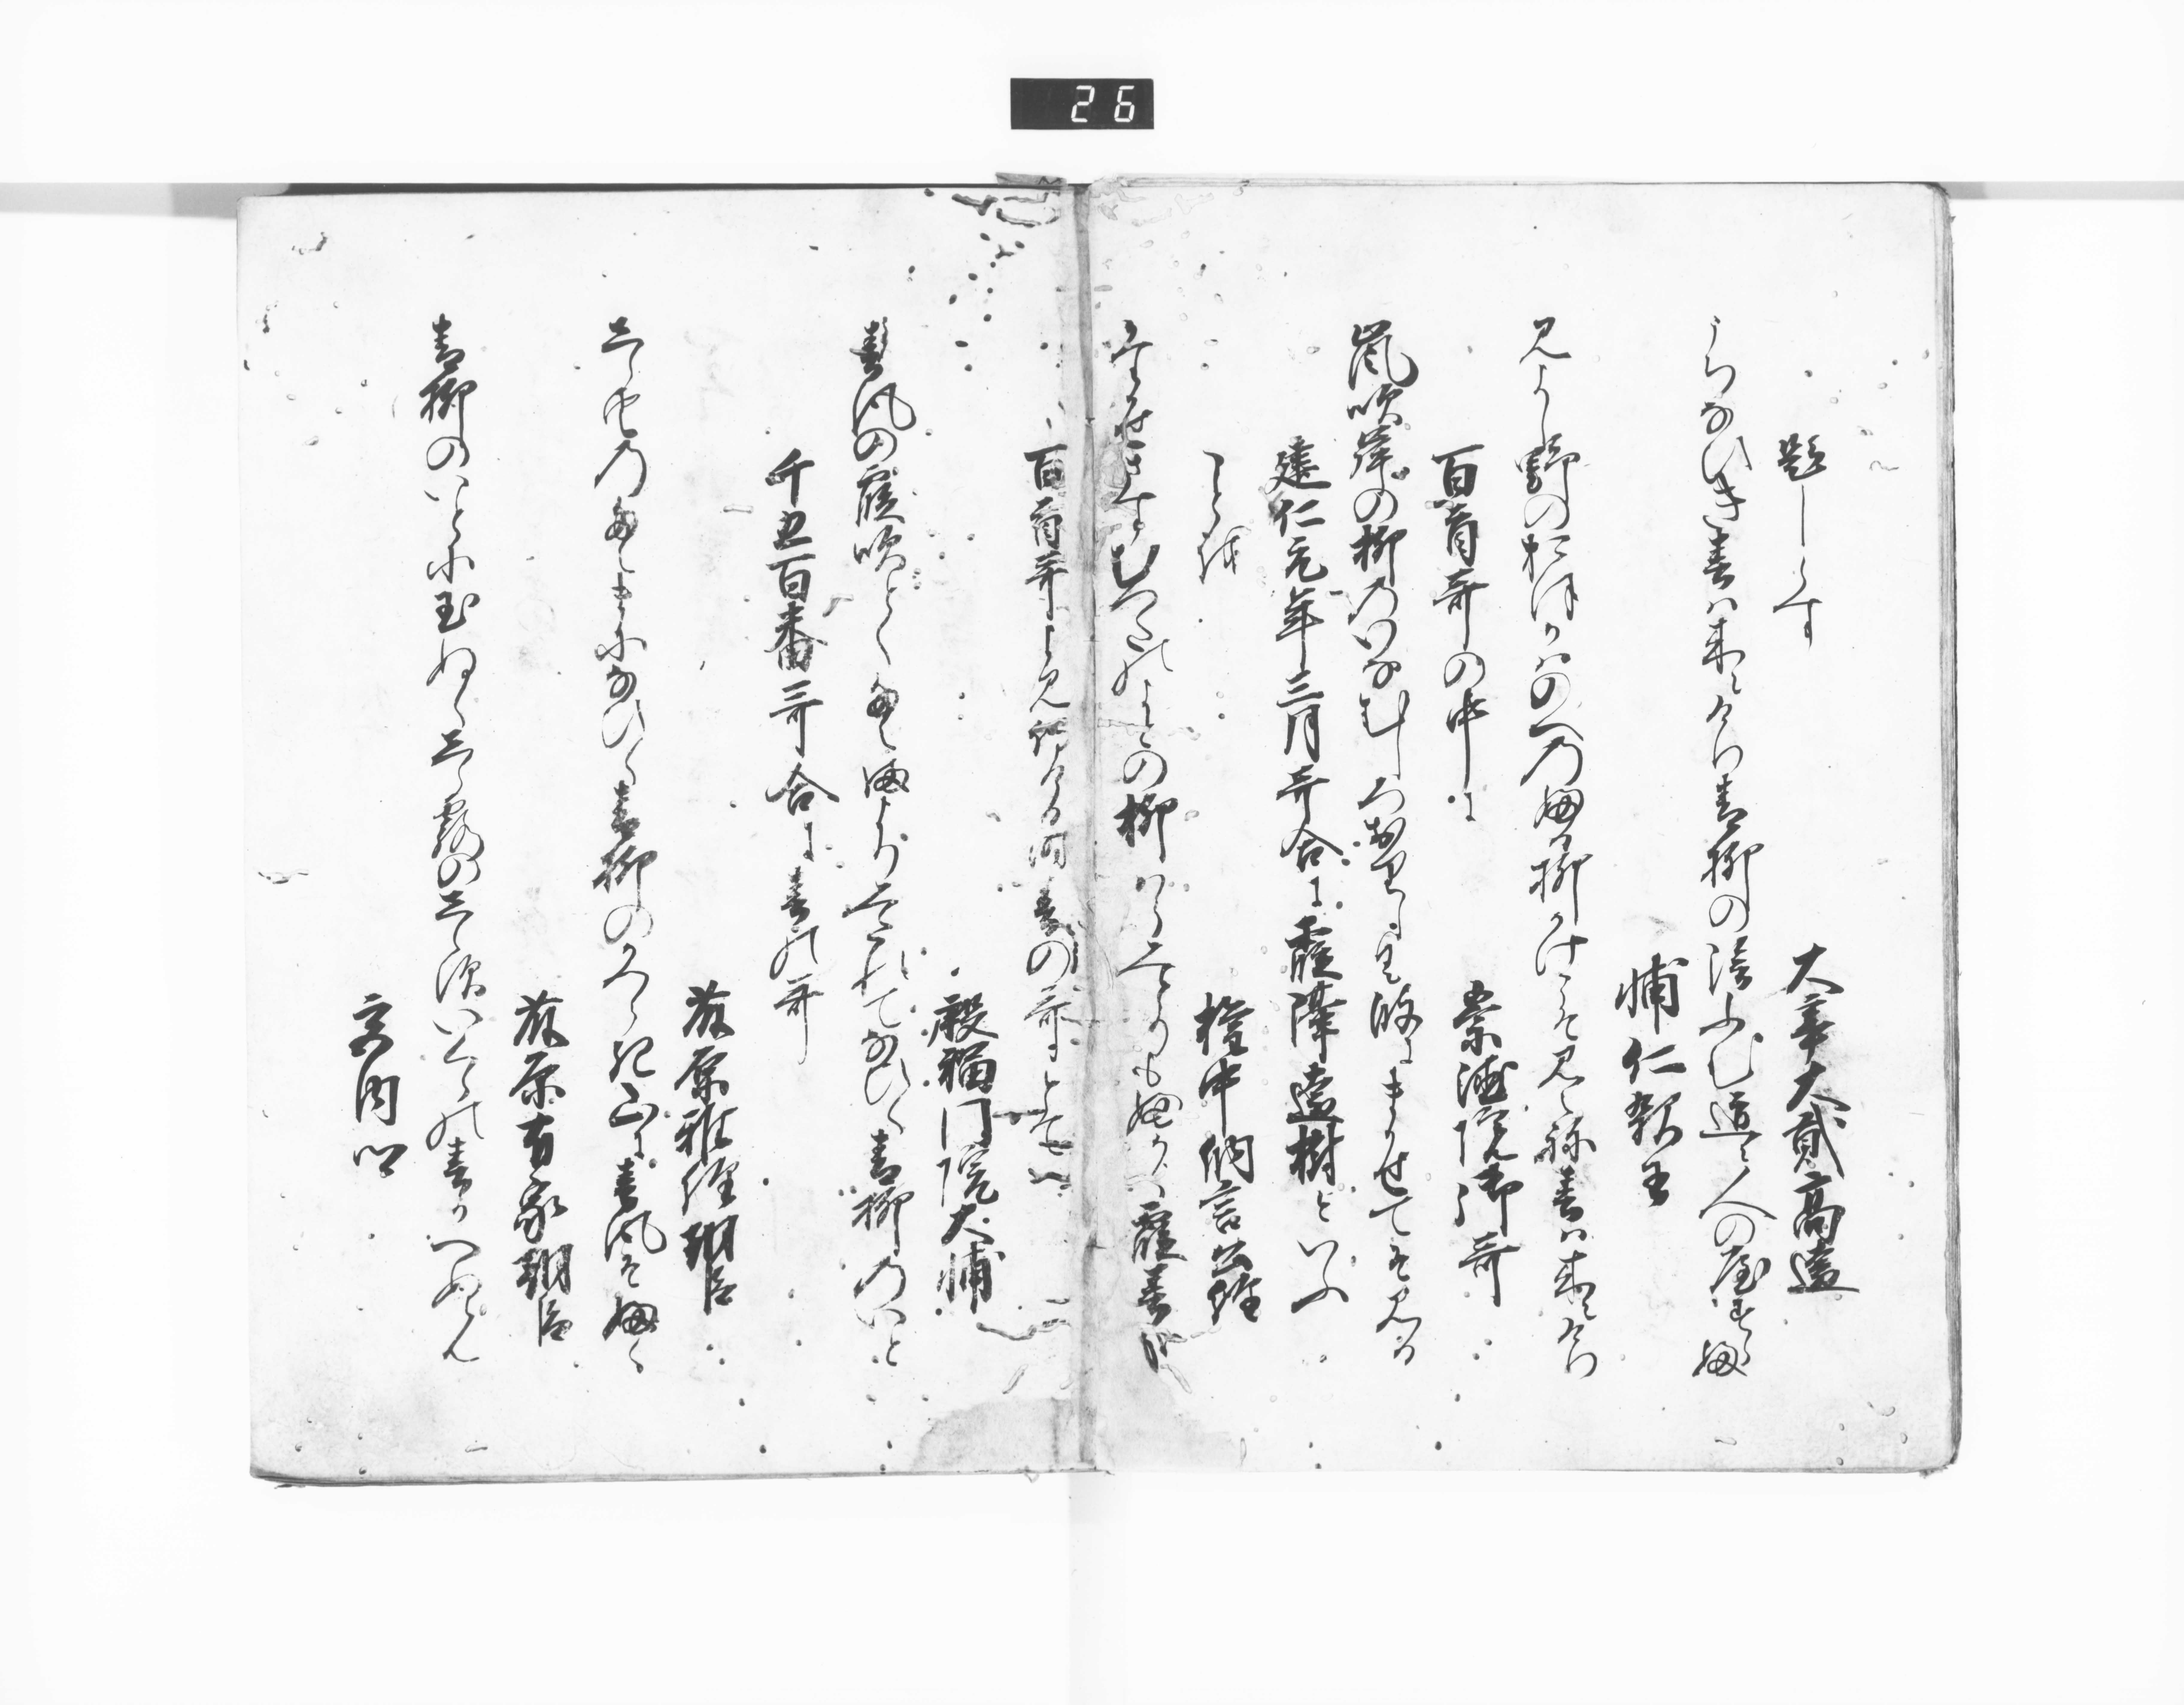 26
題しらす
大宰大貳高遠
うちなひき春は来にけり青柳の陰ふむ道に人のやすらふ
輔仁親王
みよし野のおほかはのへの古柳かけこそ見えね春は来にけり
百首哥の中に
崇徳院御哥
嵐吹岸の柳のいなむしろおりしく波にまかせてそみる
建仁元年三月哥合に霞隔遠樹といふ
ことを
権中納言公経
たかせさすむつたのよとの柳はらみとりもふかく霞春哉
百首哥よみ侍ける時春の哥とて
殷冨門院大輔
春風の霞吹とくたえまよりみたれてなひく青柳のいと
千五百番哥合に春の哥
藤原雅経朝臣
しら雲のたえまになひく青柳のかつらき山に春風そふく
藤原有家朝臣
青柳のいとに玉ぬくしら露のしらすいくよの春かへぬらん
宮内卿